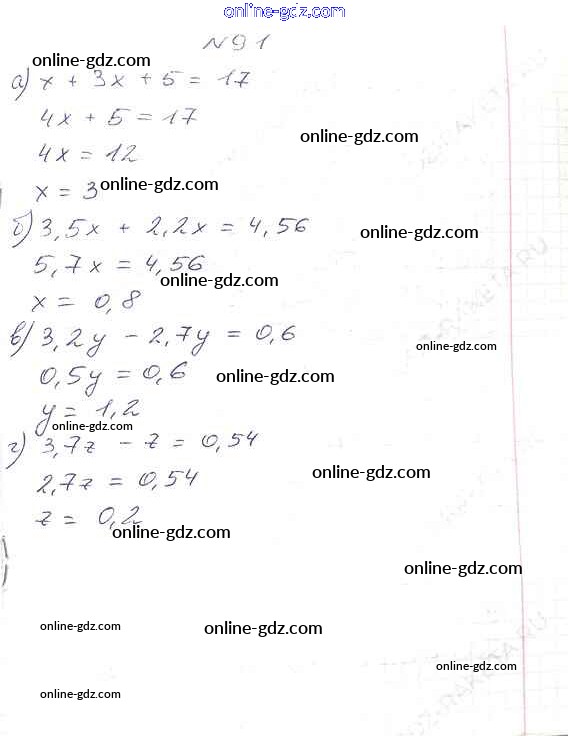 online-gdz.com
№91
online-gdz.com
а) x + 3x + 5 = 17
4x + 5 = 17
online-gdz.com
4x = 12
x = 3 online-gdz.com
б) 3,5x + 2,2x = 4,56
online-gdz.com
5,7x = 4,56
online-gdz.com
x = 0,8
в) 3,2y - 2,7y = 0,6
online-gdz.com
0,5y = 0,6 online-gdz.com
y = 1,2
online-gdz.com
г) 3,7z - z = 0,54
2,7z = 0,54 online-gdz.com
z = 0,2
online-gdz.com
online-gdz.com
online-gdz.com online-gdz.com
online-gdz.com
online-gdz.com